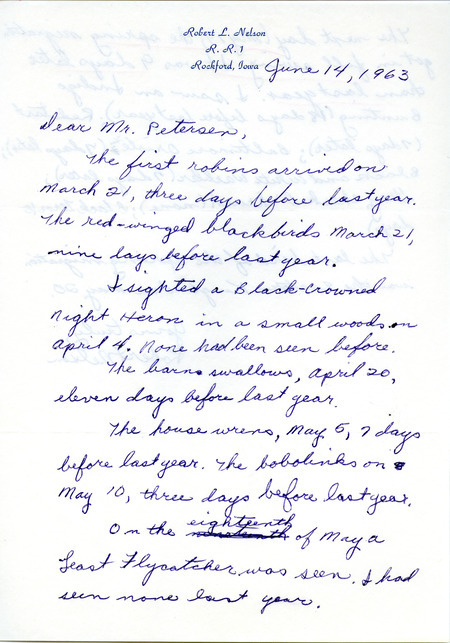 Robert L. Nelson
R. R. 1
Rockford, Iowa
June 14, 1963
Dear Mr. Petersen,
The first robins arrived on
March 21, three days before last year.
The red-winged blackbirds March 21,
nine days before last year.
I sighted a Black-Crowned
Night Heron in a small woods on
April 4. None had been seen before.
The barn swallows, April 20,
eleven days before last year.
The house wrens, May 5, 7 days
before last year. The bobolinks on
May 10, three days before last year.
On the eighteenth of May a
Least Flycatcher was seen. I had
seen none last year.